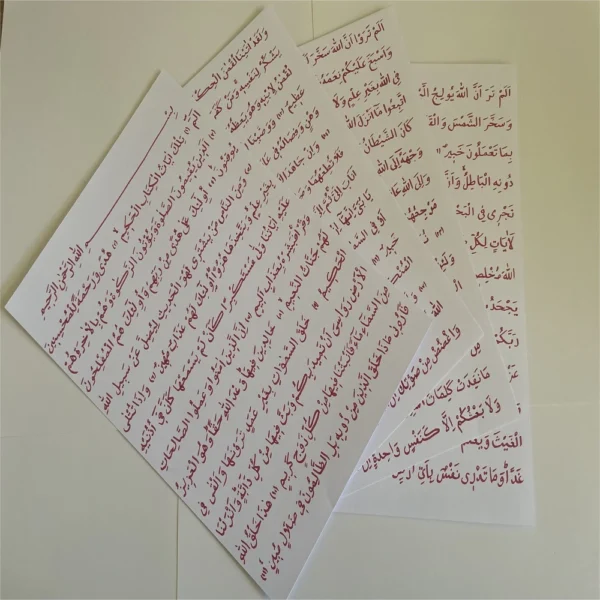 بِسْمِ اللهِ الرَّحْمٰنِ الرَّحِيمِ
الٓمٓ (١) تِلْكَ اٰيَاتُ الْكِتَابِ الْحَكِيمِ (٢) هُدًى وَرَحْمَةً لِلْمُحْسِنِينَ (٣)
الَّذِينَ يُقِيمُونَ الصَّلٰوةَ وَيُؤْتُونَ الزَّكٰوةَ وَهُمْ بِالْاٰخِرَةِ هُمْ
يُوقِنُونَ (٤) أُولٰئِكَ عَلٰى هُدًى مِنْ رَبِّهِمْ وَأُولٰئِكَ هُمُ الْمُفْلِحُونَ (٥)
وَمِنَ النَّاسِ مَنْ يَشْتَرِي لَهْوَ الْحَدِيثِ لِيُضِلَّ عَنْ سَبِيلِ اللهِ
بِغَيْرِ عِلْمٍ وَيَتَّخِذَهَا هُزُوًا أُولٰئِكَ لَهُمْ عَذَابٌ مُهِينٌ (٦) وَإِذَا تُتْلٰى
عَلَيْهِ اٰيَاتُنَا وَلّٰى مُسْتَكْبِرًا كَأَنْ لَمْ يَسْمَعْهَا كَأَنَّ فِي أُذُنَيْهِ
وَقْرًا فَبَشِّرْهُ بِعَذَابٍ أَلِيمٍ (٧) إِنَّ الَّذِينَ اٰمَنُوا وَعَمِلُوا الصَّالِحَاتِ
لَهُمْ جَنَّاتُ النَّعِيمِ (٨) خَالِدِينَ فِيهَا وَعْدَ اللهِ حَقًّا وَهُوَ الْعَزِيزُ
الْحَكِيمُ (٩) خَلَقَ السَّمٰوَاتِ بِغَيْرِ عَمَدٍ تَرَوْنَهَا وَأَلْقٰى فِي
الْأَرْضِ رَوَاسِيَ أَنْ تَمِيدَ بِكُمْ وَبَثَّ فِيهَا مِنْ كُلِّ دَابَّةٍ وَأَنْزَلْنَا
مِنَ السَّمَاءِ مَاءً فَأَنْبَتْنَا فِيهَا مِنْ كُلِّ زَوْجٍ كَرِيمٍ (١٠) هٰذَا خَلْقُ اللهِ
فَأَرُونِي مَاذَا خَلَقَ الَّذِينَ مِنْ دُونِهِ بَلِ الظَّالِمُونَ فِي ضَلَالٍ مُبِينٍ (١١)
وَلَقَدْ اٰتَيْنَا لُقْمٰنَ الْحِكْ
يَشْكُرُ لِنَفْسِهِ وَمَنْ كَفَ
لُقْمٰنُ لِابْنِهِ وَهُوَ يَعِظُهُ
عَظِيمٌ (١٣) وَوَصَّيْنَا
وَهْنٍ وَفِصَالُهُ فِي عَا
وَإِنْ جَاهَدَاكَ
فَلَا تُطِعْهُمَا وَ
اَلَمْ تَرَوْا اَنَّ اللهَ سَخَّرَ
وَاَسْبَغَ عَلَيْكُمْ نِعَمَهُ
فِي اللهِ بِغَيْرِ عِلْمٍ وَلَا
اتَّبِعُوا مَا اَنْزَلَ اللهُ
كَانَ الشَّيْطَانُ
وَجْهَهُ اِلَى اللهِ
وَاِلَى اللهِ عَا
مَرْجِعُهُمْ
اَلَمْ تَرَ اَنَّ اللهَ يُولِجُ الَّ
وَسَخَّرَ الشَّمْسَ وَالْقَ
بِمَا تَعْمَلُونَ خَبِيرٌ
دُونِهِ الْبَاطِلُ وَاَنَّ
تَجْرِي فِي الْبَحْ
لَاٰيَاتٍ لِكُلِّ
اللهَ مُخْلِصِ
يَجْحَدُ
رَبَّكُمْ
مَا نَفِدَتْ كَلِمَاتُ
وَلَا بَعْثُكُمْ اِلَّا كَنَفْسٍ وَاحِدَةٍ
الْغَيْثَ وَيَعْلَمُ
غَدًا وَمَا تَدْرِي نَفْسٌ بِاَيِّ